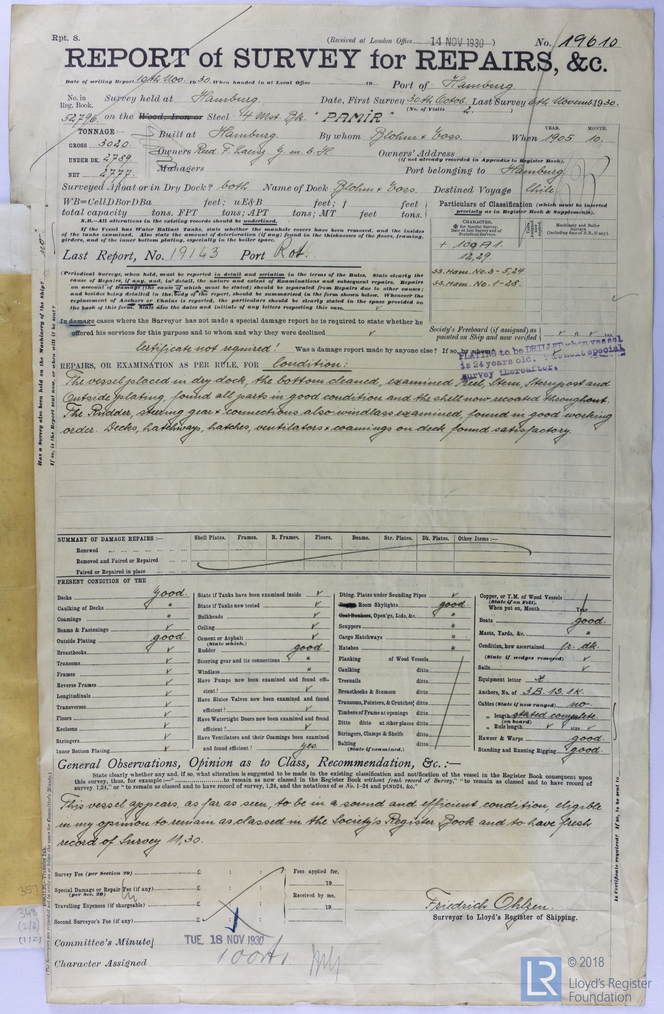 Rpt. 8.
(Received at London Office 14 NOV 1930)
No. 19610
REPORT of SURVEY for REPAIRS, &c.
Date of writing Report 10th Nov. 1930. When handed in at Local Office 19 Port of Hamburg
No. in Reg. Book. Survey held at Hamburg Date, First Survey 30th Octob. Last Survey 6th Novemb 1930.
(No. of Visits 2.)
52796 on the Wood, Iron or Steel 4 Mst. Bk. "PAMIR"
TONNAGE:—
GROSS 3020
UNDER DK. 2789
NET 2777
Built at Hamburg By whom Blohm & Voss. When 1905 10.
YEAR. MONTH.
Owners' Address
(if not already recorded in Appendix to Register Book).
Managers
Port belonging to Hamburg
Surveyed Afloat or in Dry Dock? both Name of Dock Blohm & Voss. Destined Voyage Chile
total capacity tons. FPT tons; APT tons; MT feet tons.
N.B.—All alterations in the existing records should be underlined.
If the Vessel has Water Ballast Tanks, state whether the manhole covers have been removed, and the insides
of the tanks examined. Also state the amount of deterioration (if any) found in the thicknesses of the floors, framing,
girders, and of the inner bottom plating, especially in the boiler space.
Particulars of Classification (which must be inserted
precisely as in Register Book & Supplements).
CHARACTER.
+ 100A1.
12,29.
SS.Ham. No. 3-5,24
SS.Ham. No. 1-28.
Last Report, No. 19143 Port Rot.
(Periodical Surveys, when held, must be reported in detail and seriatim in the terms of the Rules. State clearly
the cause of Repairs, if any, and, in detail, the nature and extent of Examinations and subsequent repairs. Repairs
on account of Damage (the cause of which must be stated) should be separated from Repairs due to other causes;
and besides being detailed in the body of the report, should be summarized in the form shown below. Whenever the
replacement of Anchors or Chains is reported, the particulars should be clearly stated in the space provided on
the back of this form. State also the dates and initials of any letters respecting this case.
In damage cases where the Surveyor has not made a special damage report he is required to state whether he
offered his services for this purpose and to whom and why they were declined
Society's Freeboard (if assigned) as
painted on Ship and now verified
Certificate not required! Was a damage report made by anyone else? If so, by whom
PLATING to be DRILLED when vessel
is 24 years old.
survey thereafter.
REPAIRS, OR EXAMINATION AS PER RULE, FOR Condition:
The vessel placed in dry dock, the bottom cleaned, examined Keel, Stem, Sternpost and
Outside plating, found all parts in good condition and the shell now recoated throughout.
The Rudder, steering gear & connections also windlass examined, found in good working
order. Decks, hatchways, hatches, ventilators & coamings on deck found satisfactory.
SUMMARY OF DAMAGE REPAIRS:— Shell Plates. Frames. R. Frames. Floors. Beams. Str. Plates. Dk. Plates. Other Items:—
Renewed
Removed and Faired or Repaired
Faired or Repaired in place
PRESENT CONDITION OF THE
Decks good.
Caulking of Decks "
Coamings "
Beams & Fastenings
Outside Plating good
Breasthooks
Transoms
Frames
Reverse Frames
Longitudinals
Transverses
Floors
Keelsons
Stringers
Inner Bottom Plating
State if Tanks have been examined inside
State if Tanks now tested
Bulkheads
Ceiling
Cement or Asphalt
(State which.)
Rudder good.
Steering gear and its connections "
Windlass "
Have Pumps now been examined and found efficient?
Have Sluice Valves now been examined and found efficient?
Have Watertight Doors now been examined and found efficient?
Have Ventilators and their Coamings been examined and found efficient? yes.
Dblng. Plates under Sounding Pipes
Room Skylights good
Coal Bunkers, Open'gs, Lids, &c.
Scuppers "
Cargo Hatchways "
Hatches "
Planking of Wood Vessels
Caulking ditto
Treenails ditto
Breasthooks & Stemson ditto
Transoms, Pointers, & Crutches ditto
Timbers of Frame at openings ditto
Ditto ditto at other places ditto
Stringers, Clamps & Shelfs ditto
Salting ditto
(State if examined.)
Copper, or Y.M. of Wood Vessels
(State if on Felt).
When put on, Month Year
Boats good.
Masts, Yards, &c. "
Condition, how ascertained fr. dk.
(State if wedges removed)
Sails
Equipment letter
Anchors, No. of 3B. 1S. 1K.
Cables (State if now ranged) no.
" length stated complete.
(on board)
" Rule length
Hawser & Warps good.
Standing and Running Rigging good.
General Observations, Opinion as to Class, Recommendation, &c.:—
State clearly whether any and, if so, what alteration is suggested to be made in the existing classification and notification of the vessel in the Register Book consequent upon
This vessel appears, as far as seen, to be in a sound and efficient condition, eligible
in my opinion to remain as classed in the Society's Register Book and to have fresh
record of Survey 11,30.
Survey Fee (per Section 29) £
Special Damage or Repair Fee (if any) (per Sec. 29) £
Travelling Expenses (if chargeable) £
Second Surveyor's Fee (if any) £
Fees applied for,
19
Received by me,
19
Friedrich Ohlsen.
Surveyor to Lloyd's Register of Shipping.
Committee's Minute
TUE. 18 NOV 1930
Character Assigned 100A1
LR
© 2018
Lloyd's Register
Foundation